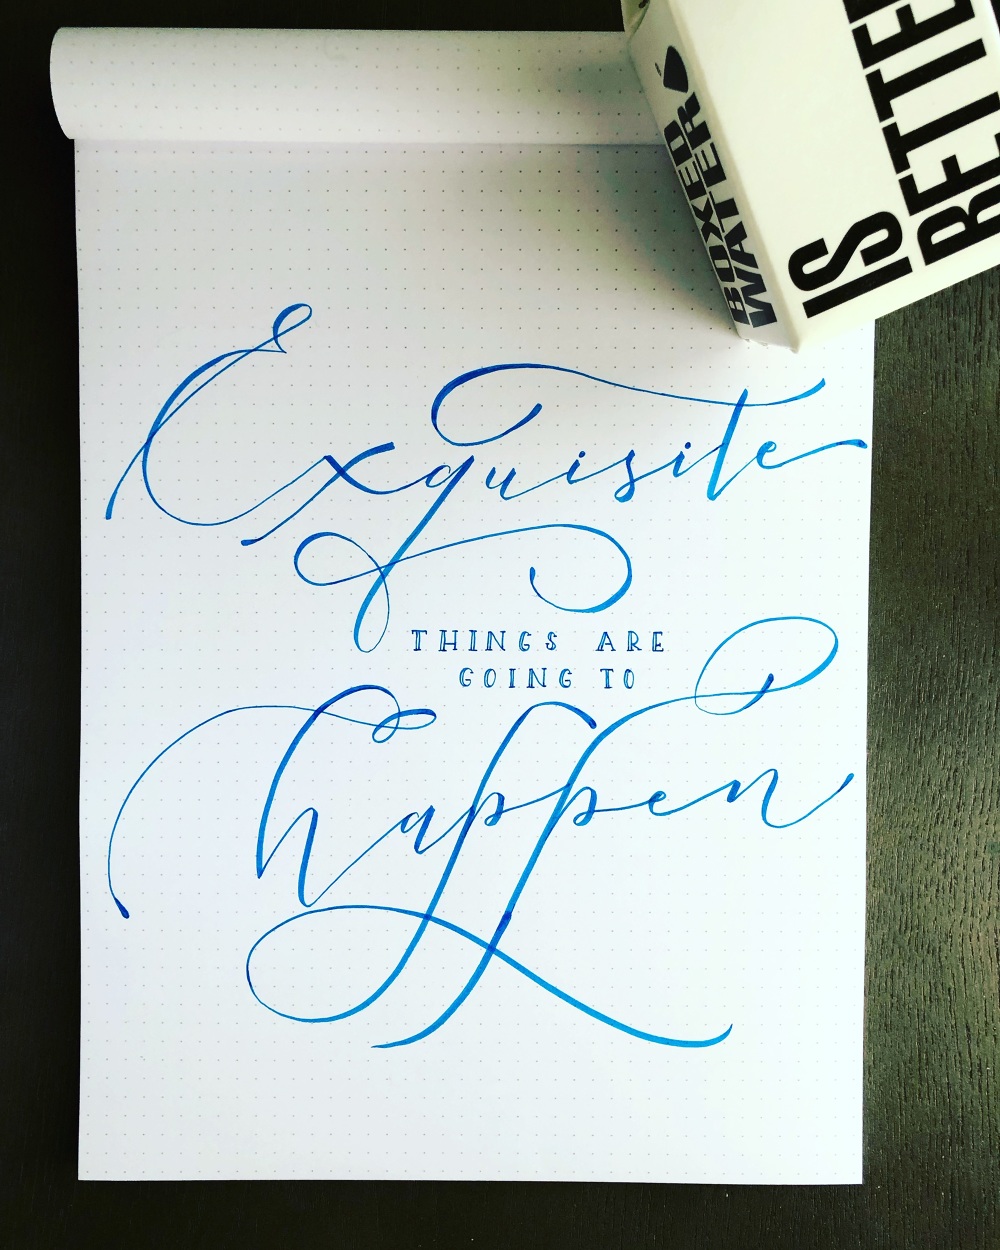 BOXED
WATER
IS
BETTE
Exquisite
THINGS ARE
GOING TO
happen